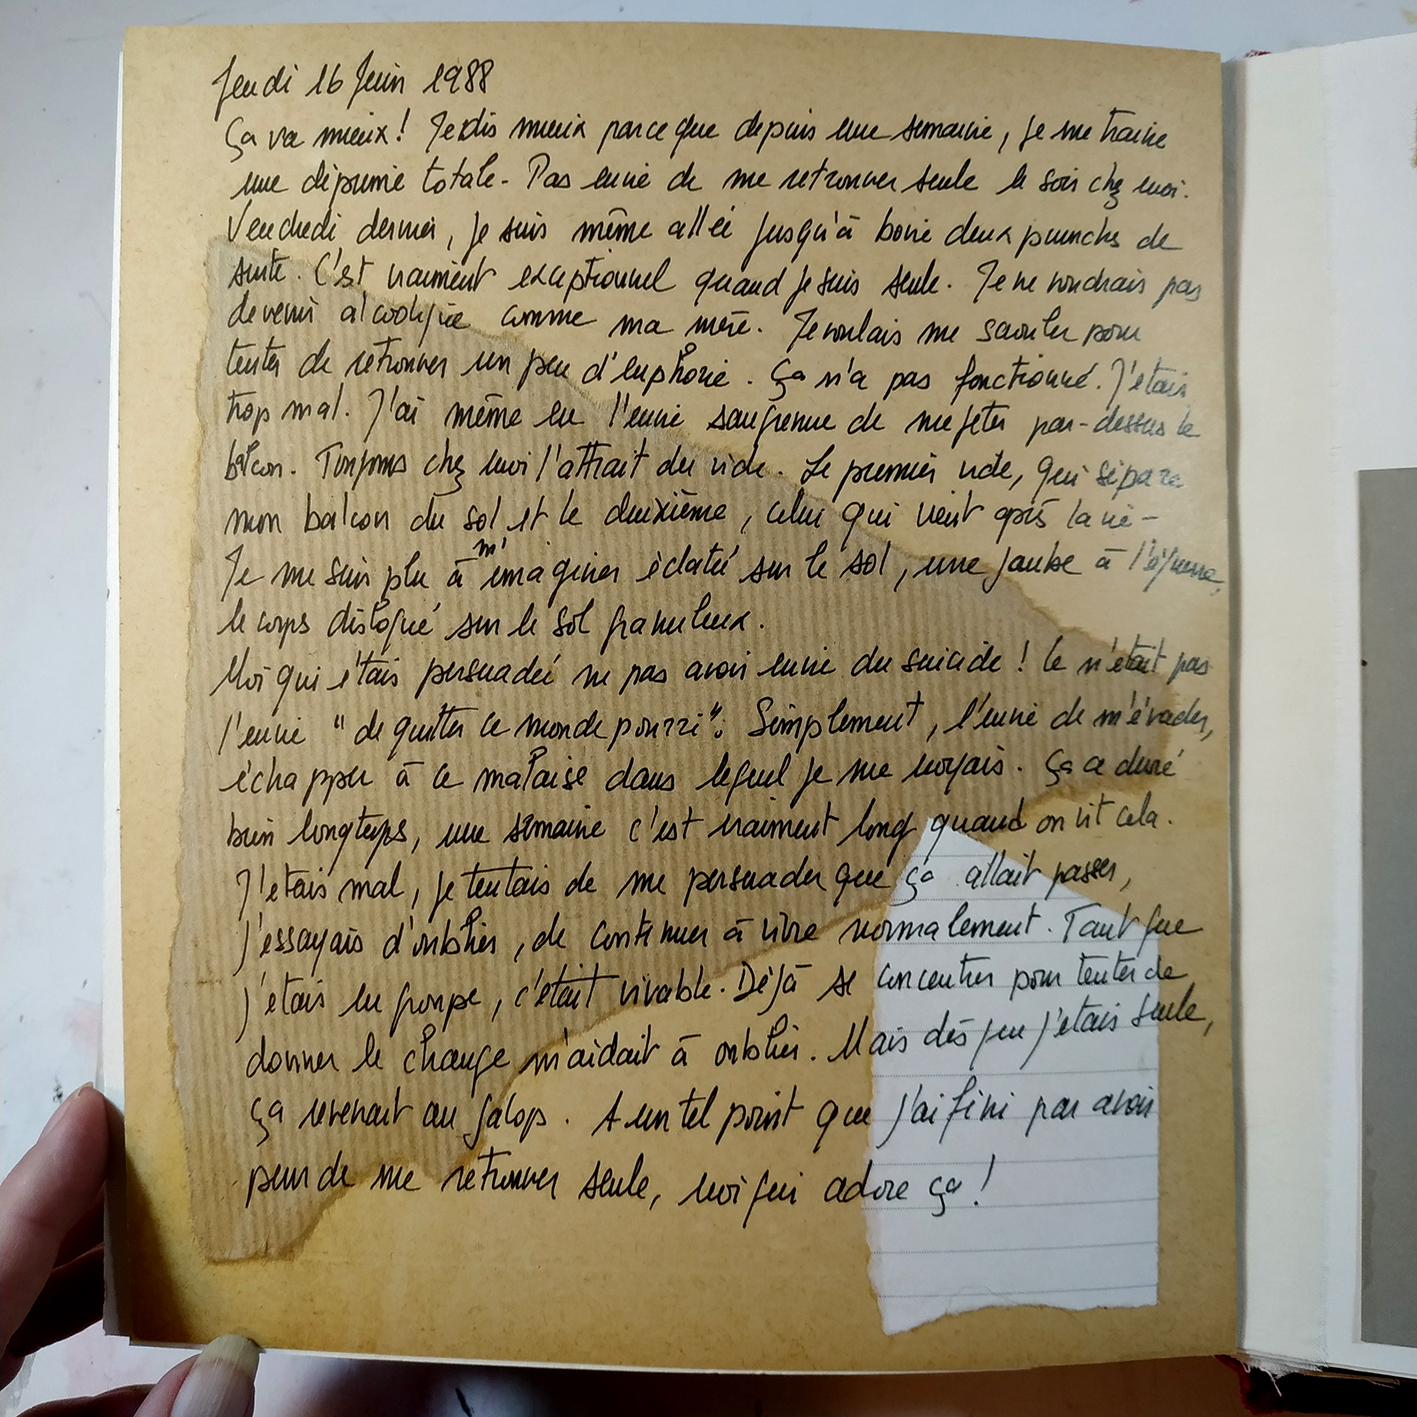 Jeudi 16 Juin 1988
Ça va mieux! Je dis mieux parce que depuis une semaine, je me traine
une déprime totale - Pas envie de me retrouver seule le soir chez moi.
Vendredi dernier, je suis même allée jusqu'à boire deux punchs de
suite. C'est vraiment exceptionnel quand je suis seule. Je ne voudrais pas
devenir alcoolique comme ma mère. Je voulais me saouler pour
tenter de retrouver un peu d'euphorie. Ça n'a pas fonctionné. J'étais
trop mal. J'ai même eu l'envie saugrenue de me jeter par-dessus le
balcon. Toujours chez moi l'attrait du vide. Le premier vide, qui sépare
mon balcon du sol et le deuxième, celui qui vient après la vie -
Je me suis plu à m'imaginer éclatée sur le sol, une jambe à l'équerre,
le corps disloqué sur le sol granuleux.
Moi qui étais persuadée ne pas avoir envie du suicide! Ce n'était pas
l'envie "de quitter ce monde pourri". Simplement, l'envie de m'évader,
échapper à ce malaise dans lequel je me noyais. Ça a duré
bien longtemps, une semaine c'est vraiment long quand on vit cela.
J'étais mal, je tentais de me persuader que ça allait passer,
j'essayais d'oublier, de continuer à vivre normalement. Tant que
j'étais en groupe, c'était vivable. Déjà se concentrer pour tenter de
donner le change m'aidait à oublier. Mais dès que j'étais seule,
ça revenait au galop. A un tel point que j'ai fini par avoir
peur de me retrouver seule, moi qui adore ça!